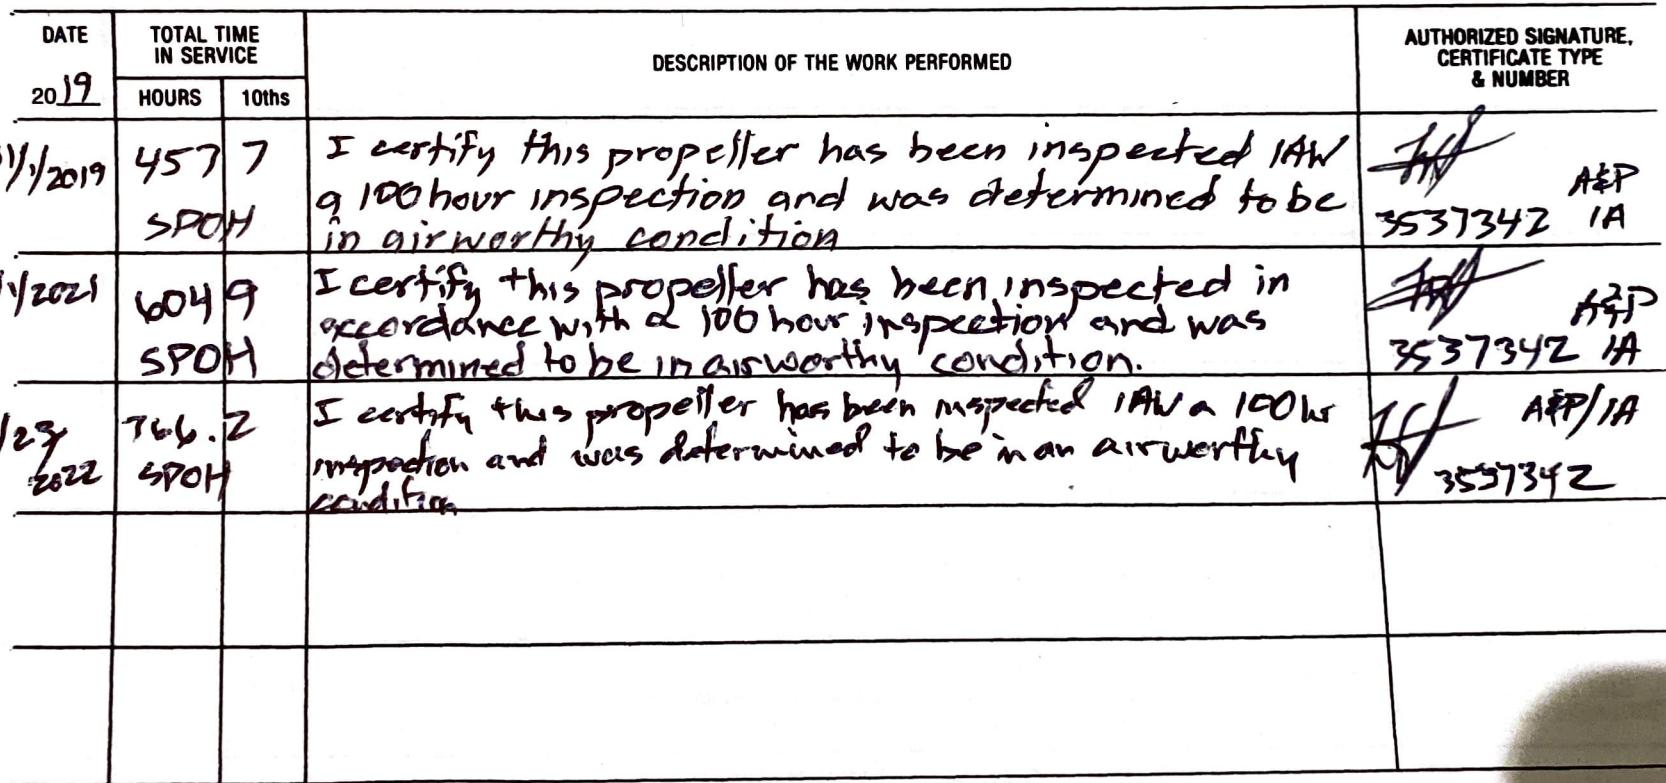 DATE
TOTAL TIME
IN SERVICE
DESCRIPTION OF THE WORK PERFORMED
AUTHORIZED SIGNATURE,
CERTIFICATE TYPE
& NUMBER
2019
HOURS
10ths
1/1/2019
457 7
SPOH
I certify this propeller has been inspected IAW
a 100 hour inspection and was determined to be
in airworthy condition
A&P
3537342 IA
1/2021
604 9
SPOH
I certify this propeller has been inspected in
accordance with a 100 hour inspection and was
determined to be in airworthy condition.
A&P
3537342 IA
/23/
2022
766.2
SPOH
I certify this propeller has been inspected IAW a 100 hr
inspection and was determined to be in an airworthy
condition
A&P/IA
3537342